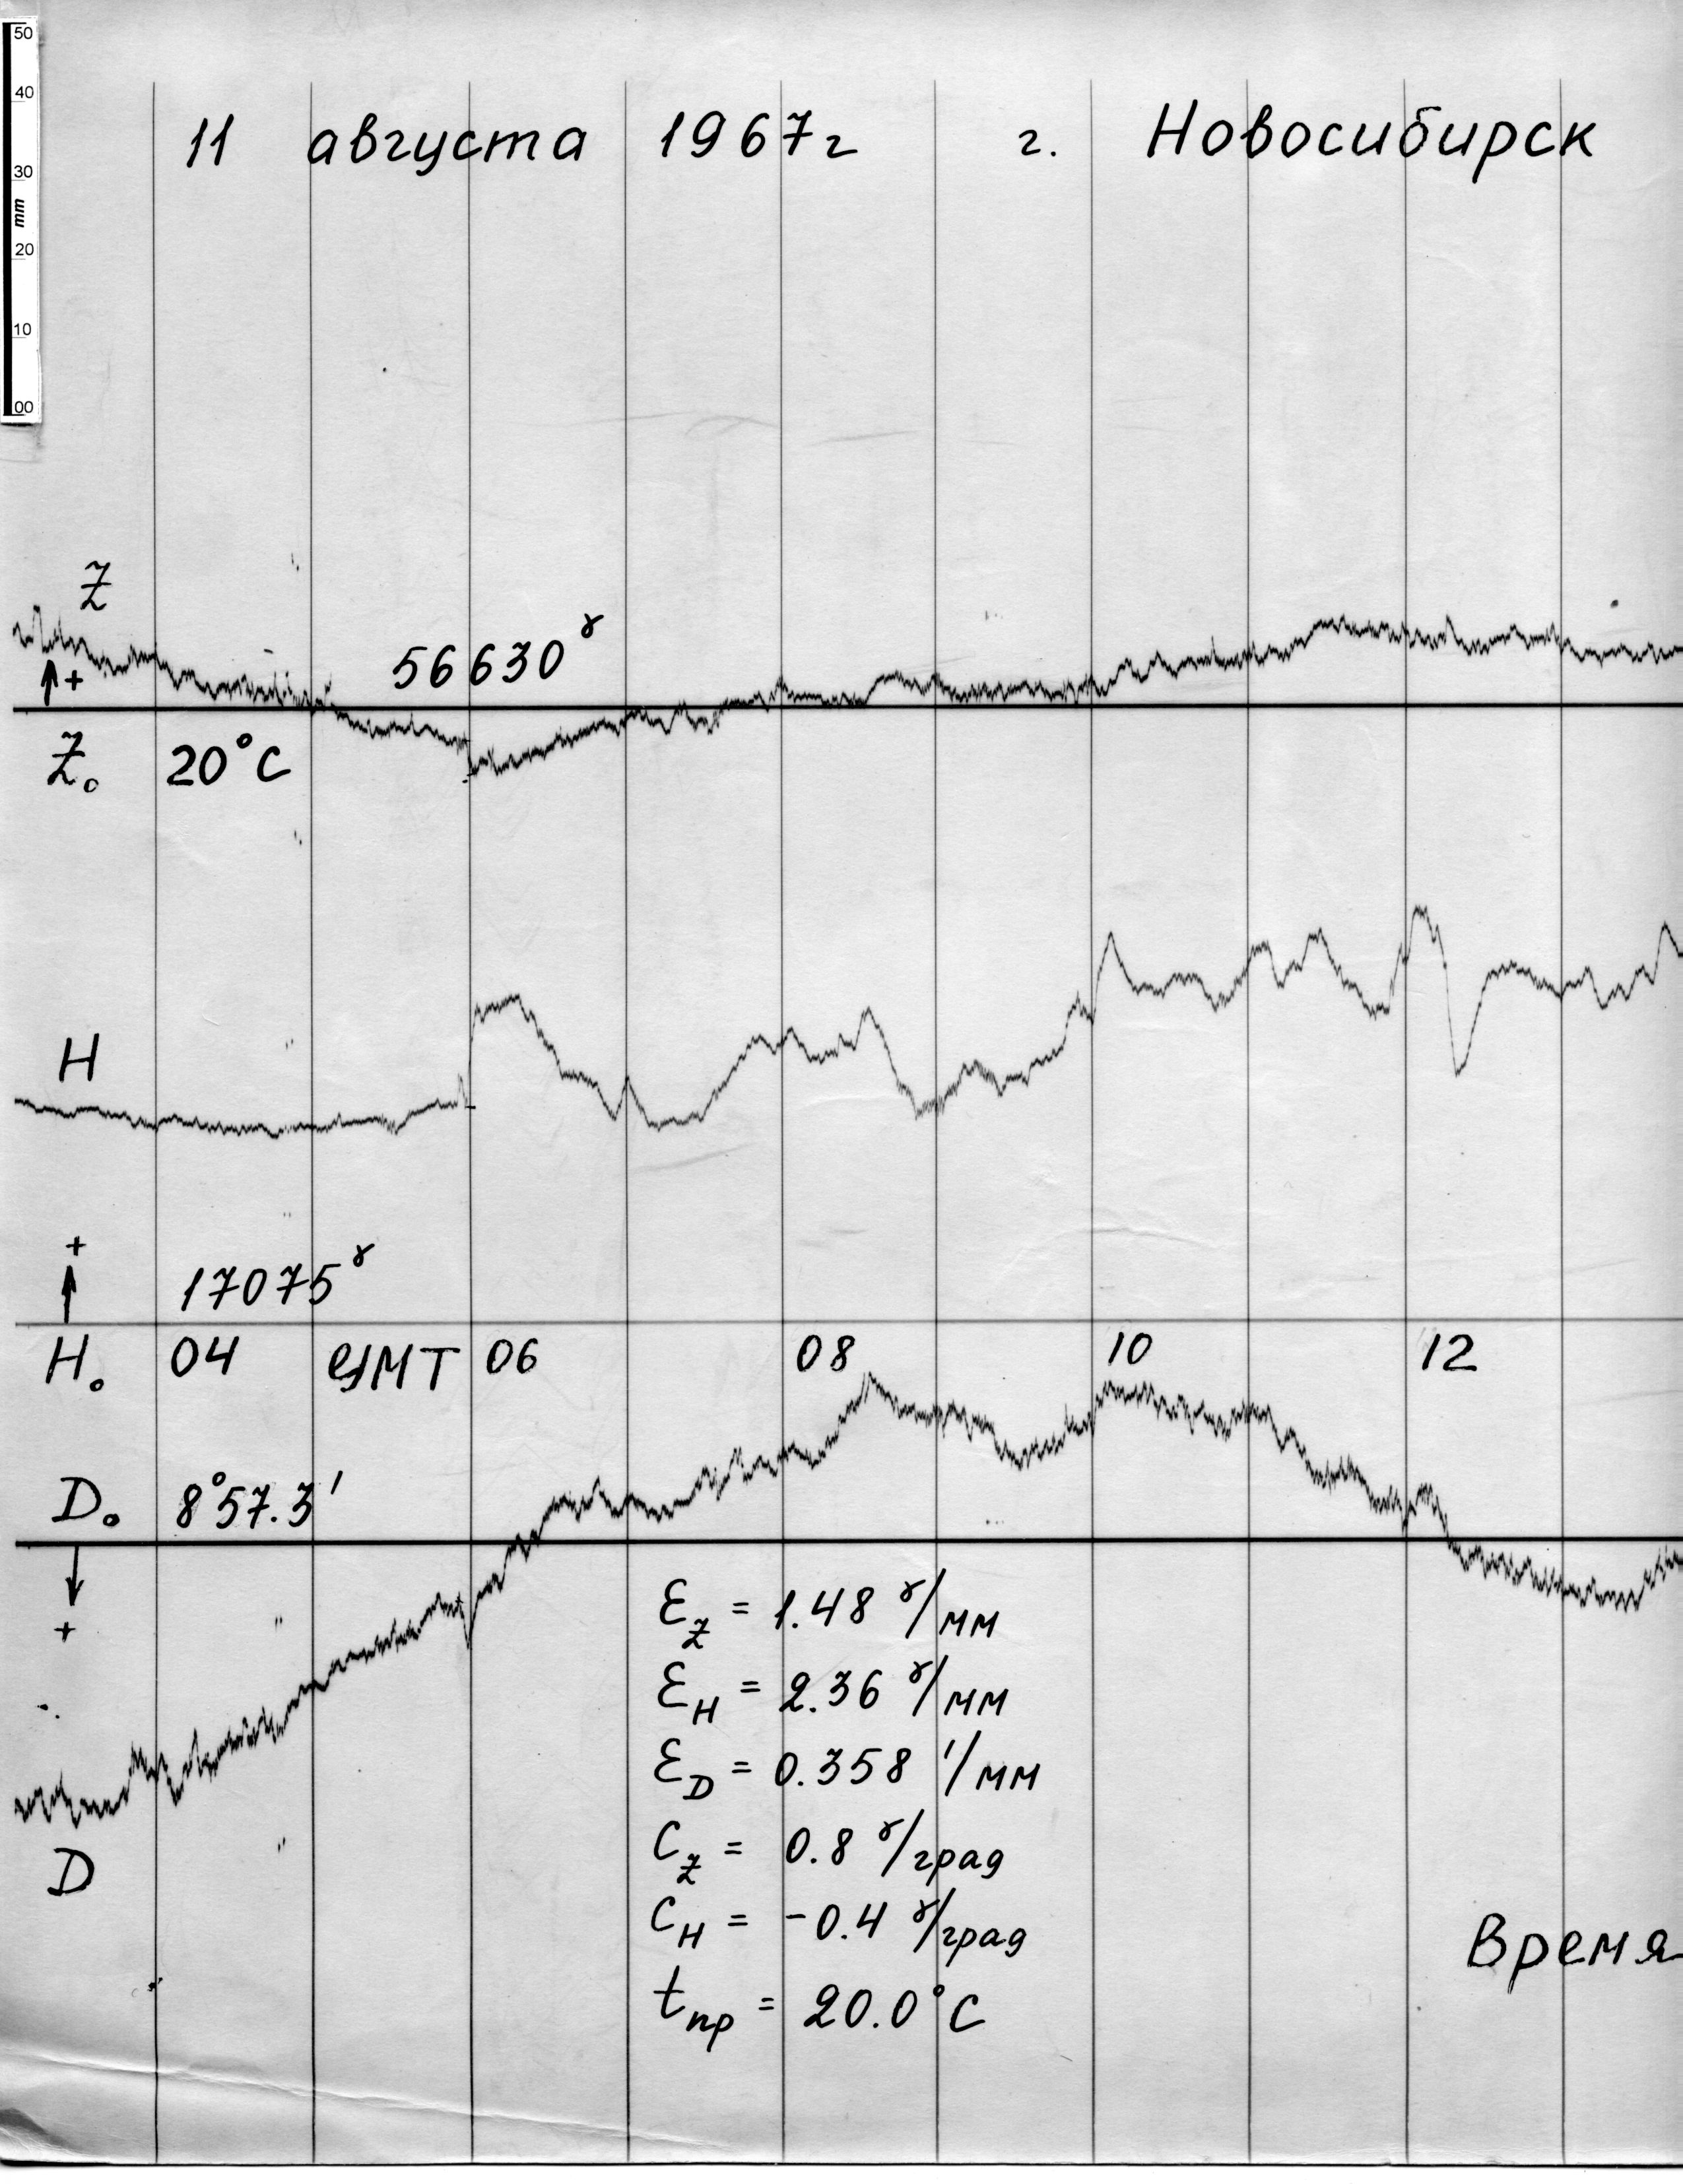 50
40
30
mm
20
10
00
11 августа 1967г г. Новосибирск
Z
56630γ
↑+
Z₀ 20°C
H
+
↑
17075γ
H₀ 04 GMT 06 08 10 12
D₀ 8°57.3'
↓
+
Ɛz = 1.48 γ/мм
ƐH = 2.36 γ/мм
ƐD = 0.358 '/мм
Cz = 0.8 γ/град
D
CH = -0.4 γ/град
Время
tпр = 20.0°C